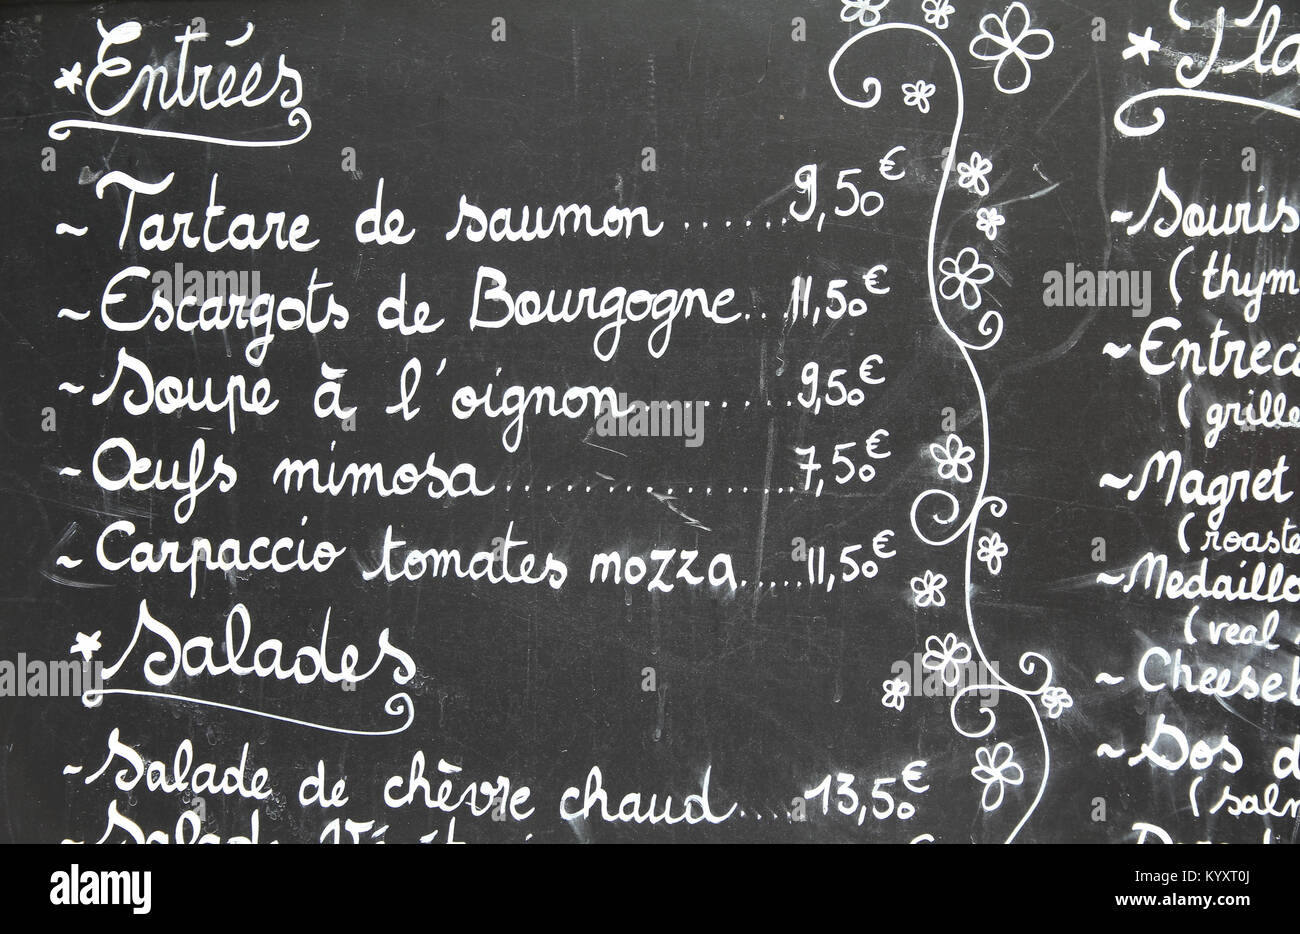 * Entrées
~ Tartare de saumon ...... 9,50€
~ Escargots de Bourgogne... 11,50€
~ Soupe à l'oignon......... 9,50€
~ Œufs mimosa................. 7,50€
~ Carpaccio tomates mozza..... 11,50€
* Salades
~ Salade de chèvre chaud.... 13,50€
~ Salade
* Pla
~ Souris
(thym
~ Entrec
(grille
~ Magret
(roaste
~ Medaillo
(veal
~ Cheeseb
~ Dos d
(saln
alamy
Image ID: KYXT0J
www.alamy.com